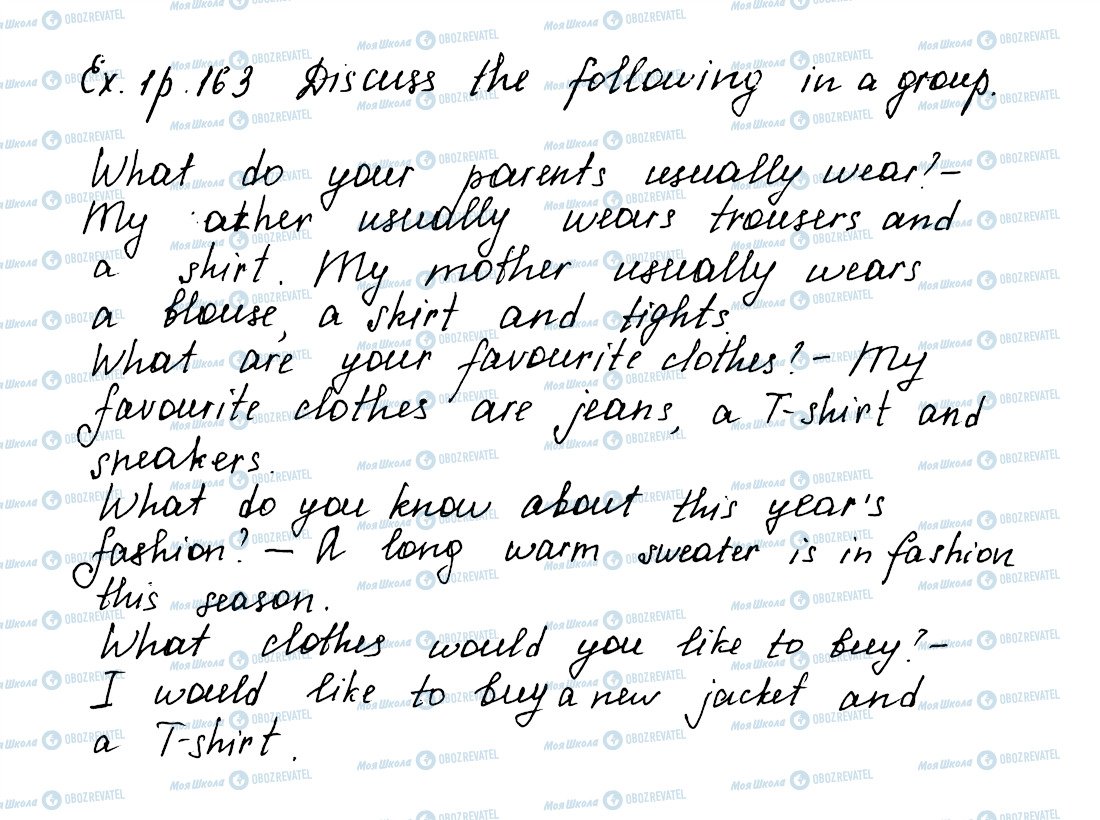 Ex. 1 p. 163 Discuss the following in a group.
What do your parents usually wear? –
My ather usually wears trousers and
a shirt. My mother usually wears
a blouse, a skirt and tights.
What are your favourite clothes? – My
favourite clothes are jeans, a T-shirt and
sneakers.
What do you know about this year's
fashion? – A long warm sweater is in fashion
this season.
What clothes would you like to buy? –
I would like to buy a new jacket and
a T-shirt.
МояШкола OBOZREVATEL